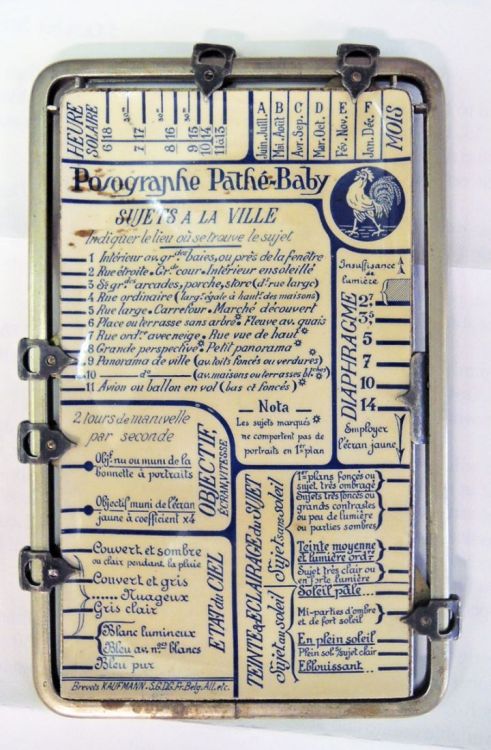 HEURE
SOLAIRE
6 18
30ᵐ
7 17
30ᵐ
8 16
30ᵐ
9 15
10 14
11 à 13
A Juin. Juill.
B Mai. Août
C Avr. Sep.
D Mar. Oct.
E Fév. Nov.
F Jan. Déc.
MOIS
Posographe Pathé-Baby
SUJETS A LA VILLE
Indiquer le lieu où se trouve le sujet
1 Intérieur av. gr.des baies, ou près de la fenêtre
2 Rue étroite. Gr.de cour. Intérieur ensoleillé
3 Sᵗ gr.des arcades, porche, store (dᵗ rue large)
4 Rue ordinaire (larg. égale à hautʳ des maisons)
5 Rue large. Carrefour. Marché découvert
6 Place ou terrasse sans arbre☼ Fleuve av. quais
7 Rue ordʳᵉ avec neige. Rue vue de haut☼
8 Grande perspective☼ Petit panorama☼
9 Panorama de ville (av. toits foncés ou verdures)☼
10 d° (av. maisons ou terrasses bl.ches)☼
11 Avion ou ballon en vol (bas et foncés)☼
Insuffisance
de
lumière
DIAPHRAGME
12ᵐ
3,5
5
7
10
14
Employer
l'écran jaune
2 tours de manivelle
par seconde
Obj.f nu ou muni de la
bonnette à portraits
Objectif muni de l'écran
jaune à coefficient x4
OBJECTIF,
ÉCRAN, VITESSE
Nota
Les sujets marqués ☼
ne comportent pas de
portraits en 1er plan
Couvert et sombre
ou clair pendant la pluie
Couvert et gris
Nuageux
Gris clair
Blanc lumineux
Bleu av. nges blancs
Bleu pur
ETAT du CIEL
TEINTE & ECLAIRAGE du SUJET
Sujet sans soleil
1ers plans foncés ou
sujet très ombragé
Sujets très foncés ou
grands contrastes
ou peu de lumière
ou parties sombres
Teinte moyenne
et lumière ordre
Sujet très clair ou
en forte lumière
Sujet au soleil
Soleil pâle...
Mi-parties d'ombre
et de fort soleil
En plein soleil
Plein sol. s/sujet clair
Eblouissant...
Brevets KAUFMANN. S.G.D.G. Fr. Belg. All. etc.